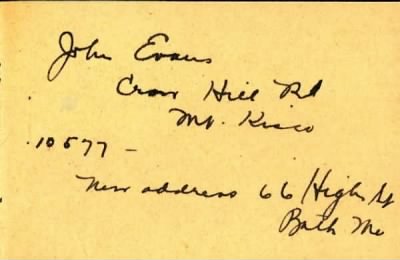 John Evans
Crow Hill Rd
Mt. Kisco
10577 -
New address 66 High St
Bath Me